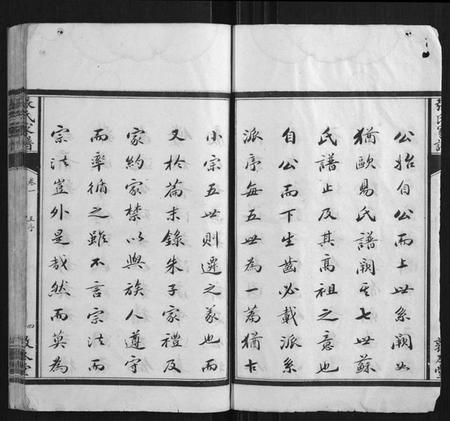 公抬自公而上世系闕如
猶歐昜氏譜闕其七世蘇
氏譜止及其高祖之意也
自公而下生齒必載派系
派序每五世為一篇猶古
小宗五世則遷之義也而
又於篇末錄朱子家禮及
家約家禁以與族人遵守
而率循之雖不言宗法而
宗法豈外是哉然而莫為
張氏家譜
卷一
序
四